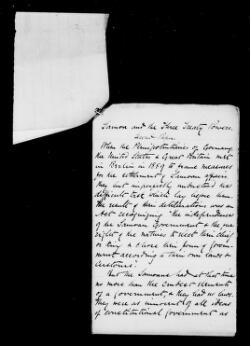 Samoa and the Three Treaty Powers
When the Plenipotentiaries of Germany
the United States & Great Britain met
in Berlin in 1889 to frame measures
for the settlement of Samoan affairs
they but imperfectly understood the
difficult task which lay before them.
The result of their deliberations was an
Act recognizing "the independence
of the Samoan Government & the free
right of the natives to elect their chief
or king & choose their form of govern-
ment according to their own laws &
customs."
But the Samoans had at that time
no more than the crudest elements
of a government, & they had no laws.
They were as innocent of all ideas
of constitutional government as